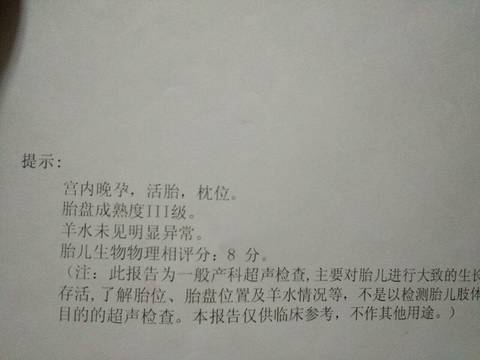 提示:
宫内晚孕，活胎，枕位。
胎盘成熟度III级。
羊水未见明显异常。
胎儿生物物理相评分: 8 分。
(注: 此报告为一般产科超声检查, 主要对胎儿进行大致的生长
存活, 了解胎位、胎盘位置及羊水情况等，不是以检测胎儿肢体
目的的超声检查。本报告仅供临床参考，不作其他用途。)